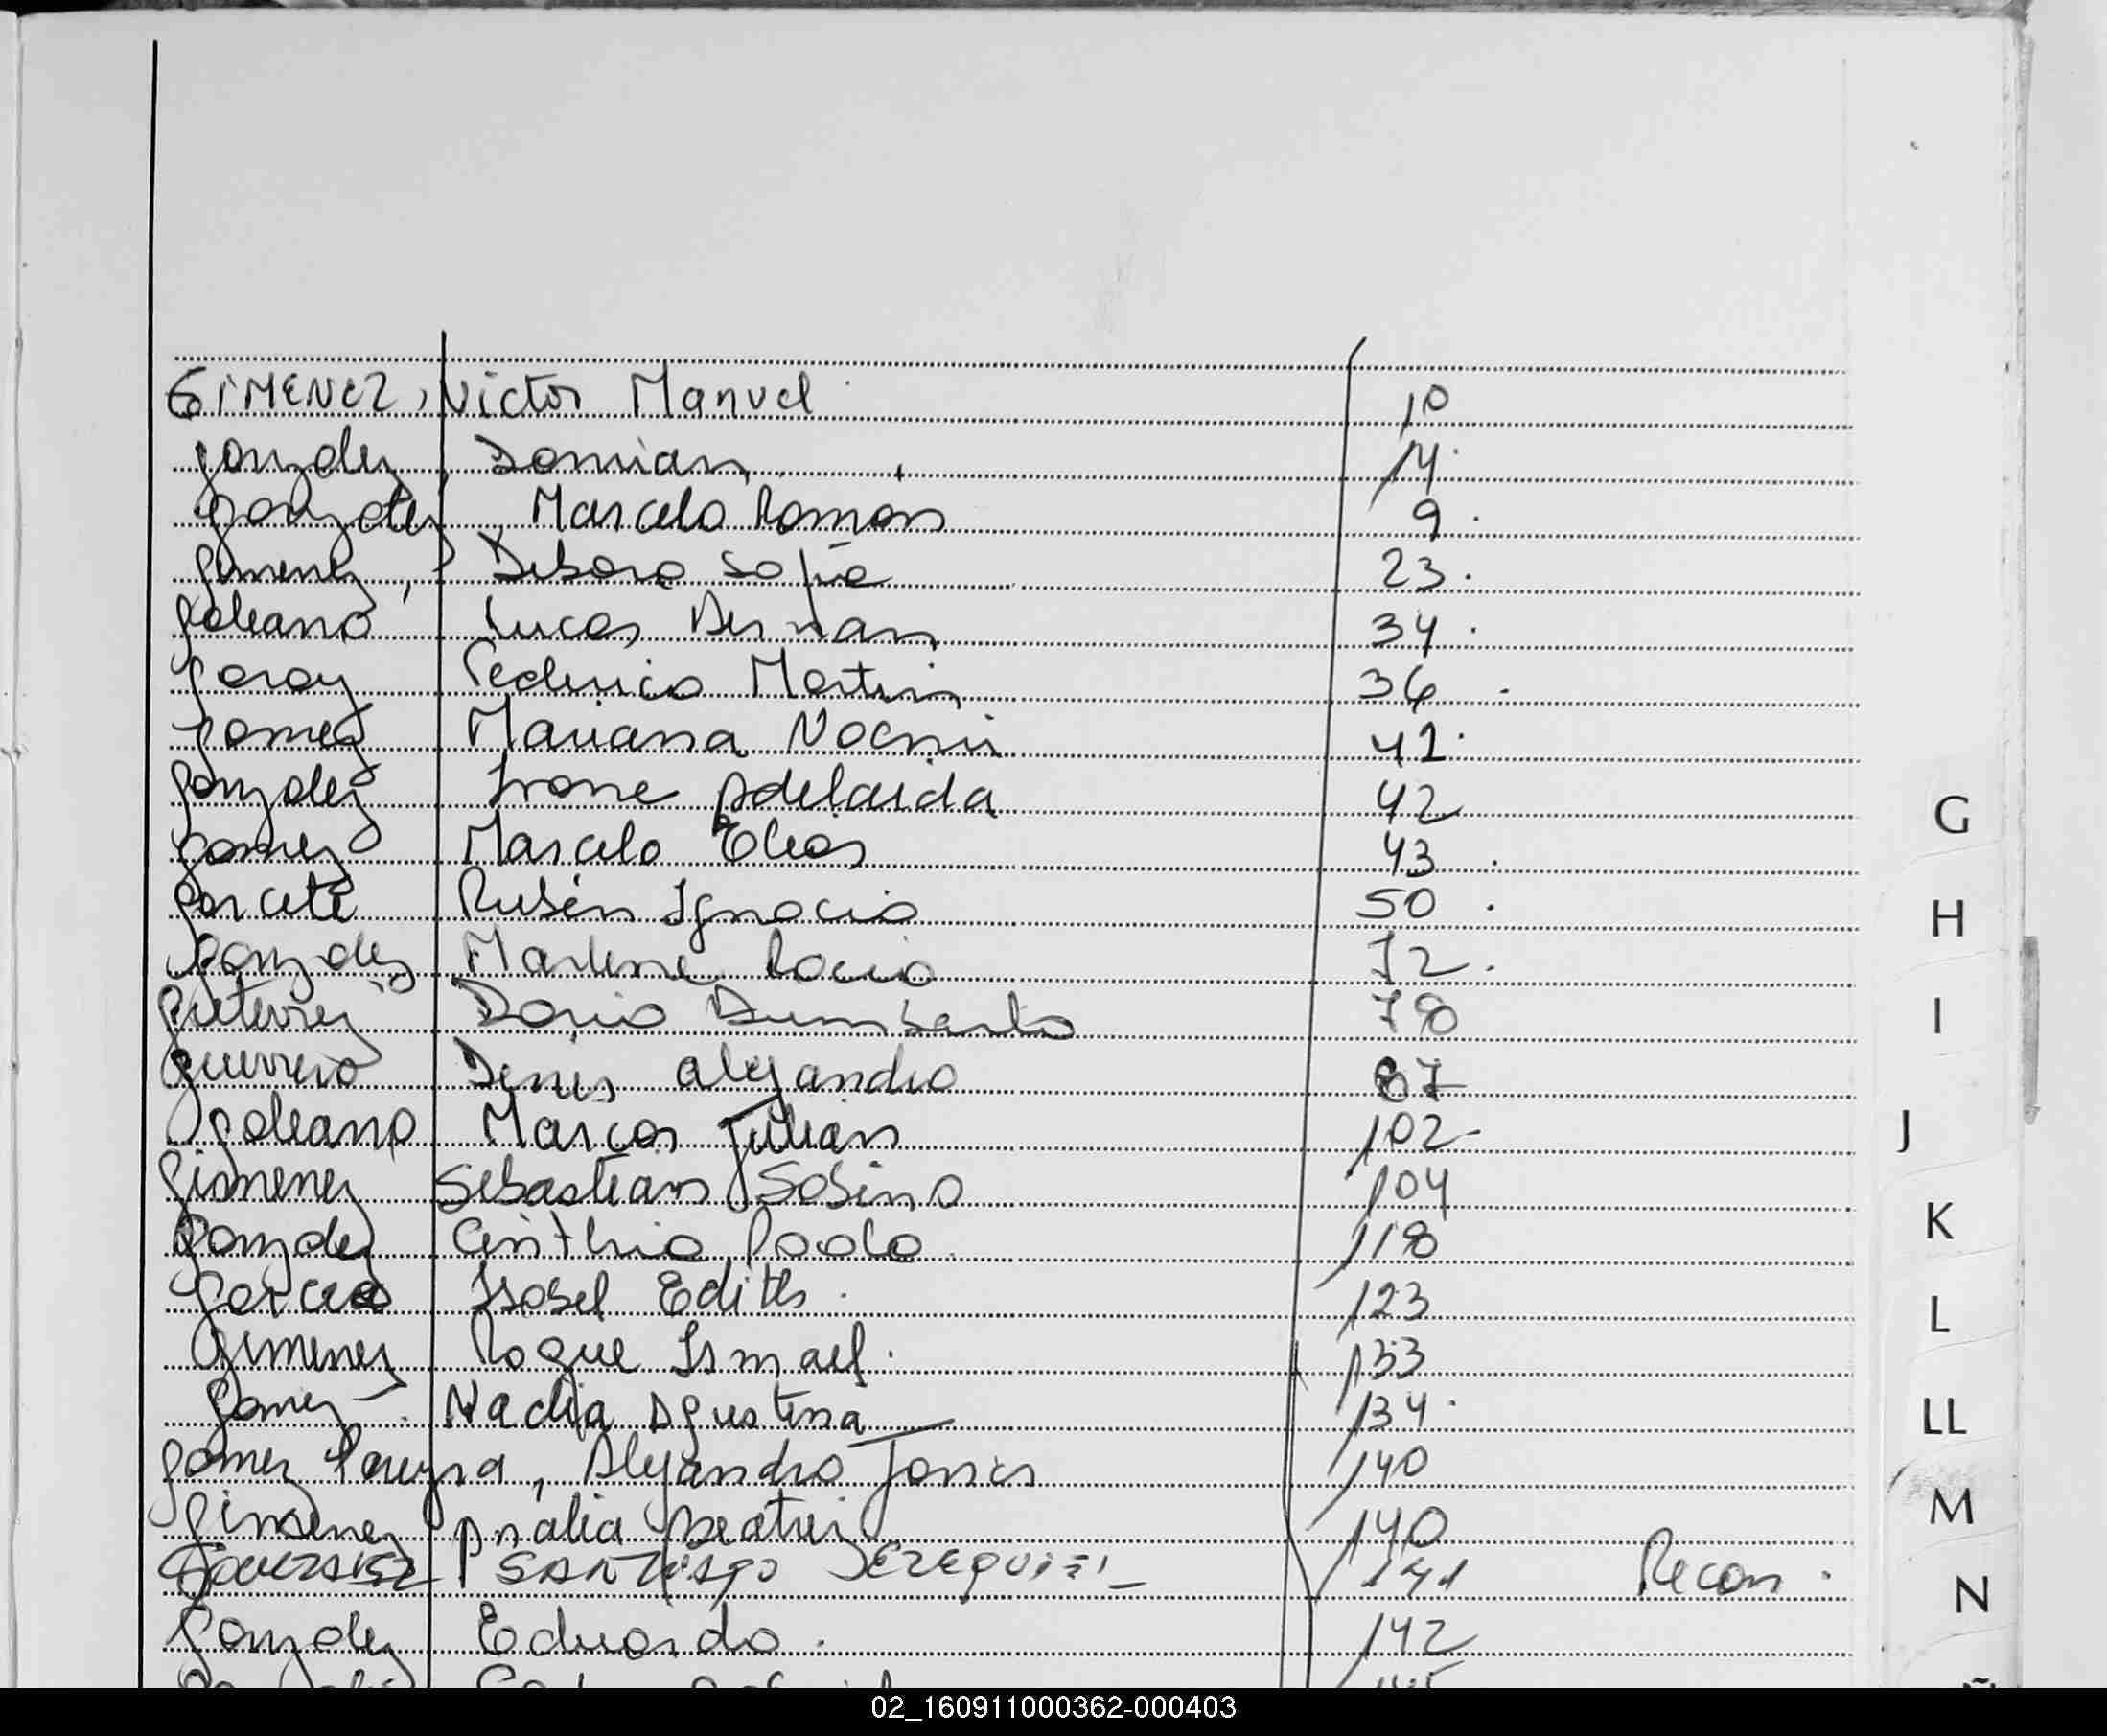 GIMENEZ, Victor Manuel 10
Gonzalez, Damian 14.
Gonzalez, Marcelo Roman 9.
Gimenez, Debora Sofia 23.
Galeano Lucas Hernan 34.
Garay Federico Martin 36.
Gomez Mariana Noemi 41.
Gonzalez Ivone Adelaida 42
Gomez Marcelo Elias 43.
Garcete Rubén Ignacio 50.
Gonzalez Marlene Rocio 72.
Gutierrez Dario Humberto 78
Guerrero Denis Alejandro 87
Galeano Marcos Julian 102-
Gimenez Sebastian Sabino 104
Gonzalez Cinthia Paola 118
Garcia Isabel Edith. 123
Gimenez Roque Ismael. 133
Gomez Nadia Agustina 134.
Gomez Pereyra, Alejandro Jonas 140
Gimenez Analia Beatriz 140
GONZALEZ SANTIAGO EZEQUIEL 141 Recon.
Gonzalez Eduardo. 142
G
H
I
J
K
L
LL
M
N
02_160911000362-000403